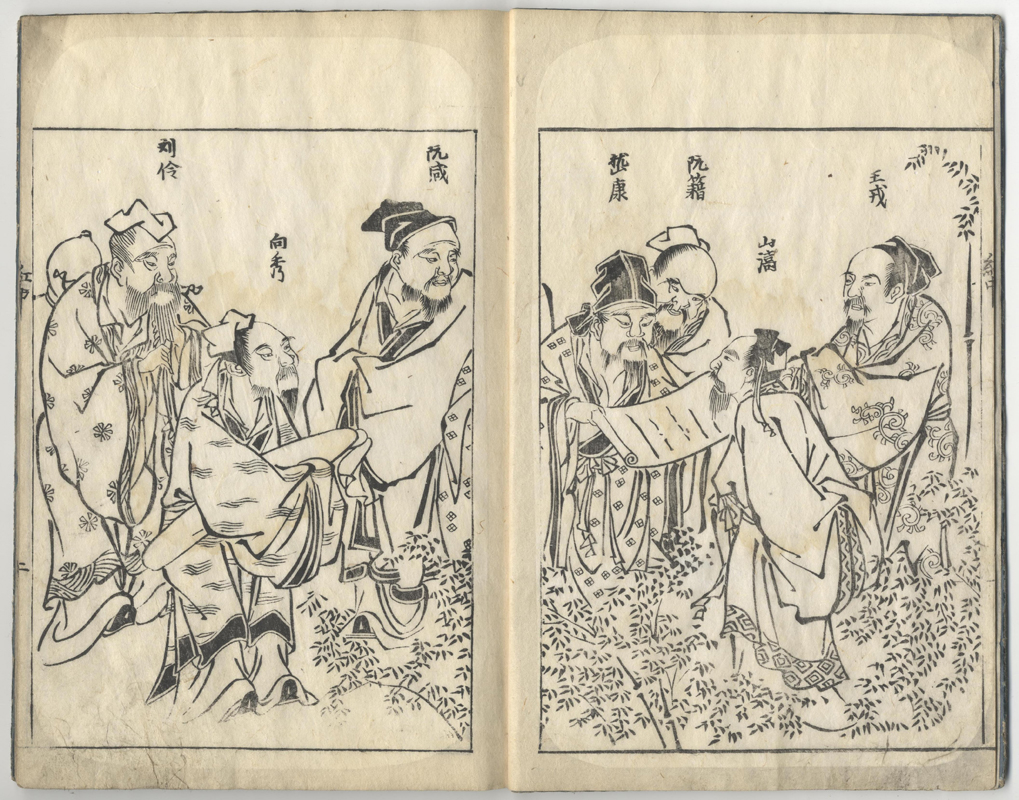 王戎
山濤
阮籍
嵆康
阮咸
向秀
刘伶